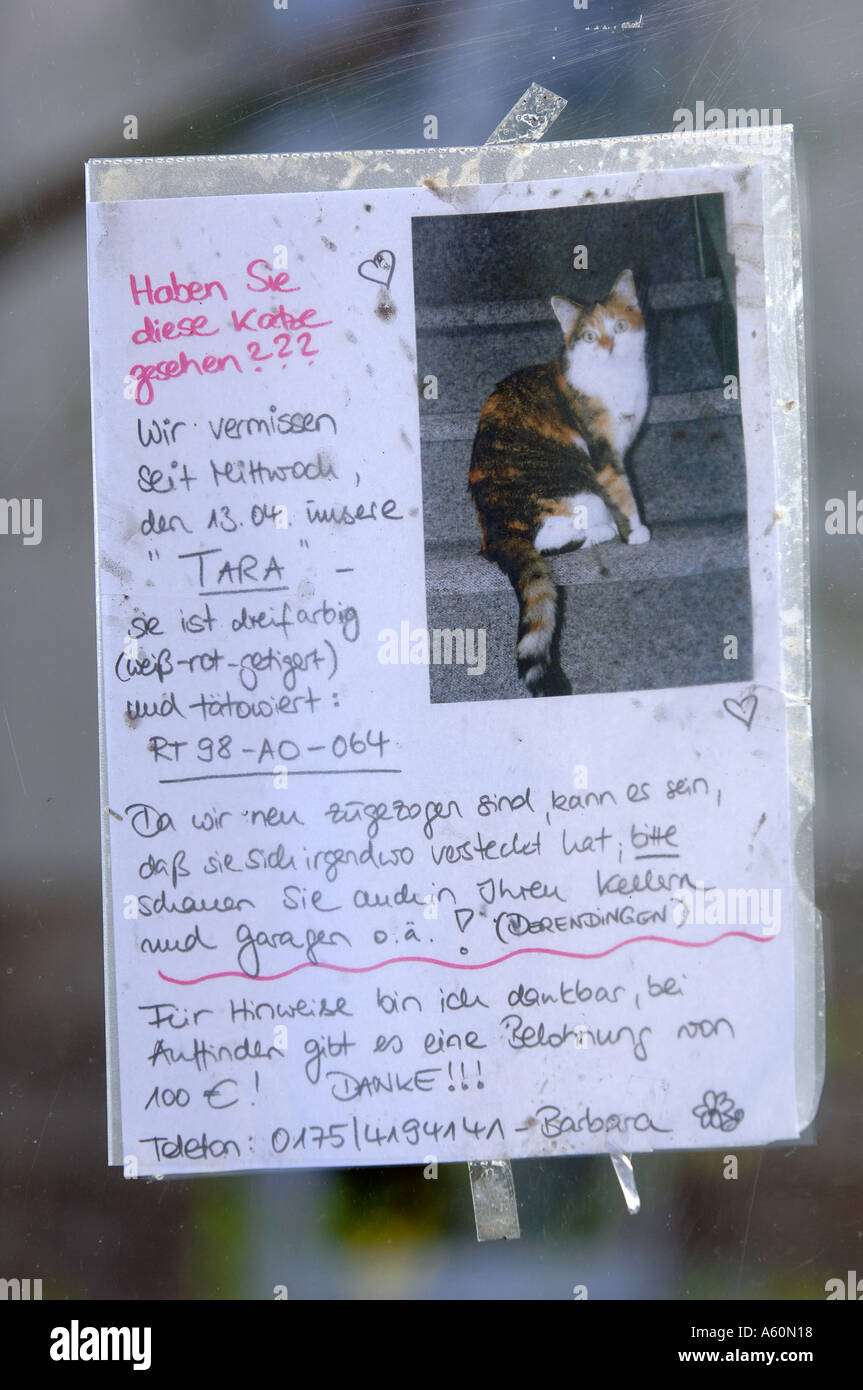 Haben Sie
diese Katze
gesehen???
Wir vermissen
seit Mittwoch,
den 13.04. unsere
"TARA" –
sie ist dreifarbig
(weiß-rot-getigert)
und tätowiert:
RT 98-AO-064
Da wir neu zugezogen sind, kann es sein,
daß sie sich irgendwo versteckt hat; bitte
schauen Sie auch in Ihren Kellern
und Garagen o.ä.! (DERENDINGEN)
Für Hinweise bin ich dankbar, bei
Auffinden gibt es eine Belohnung von
100 €! DANKE!!!
Telefon: 0175/4194141 – Barbara
a
alamy
a
alamy
alamy stock photo
A60N18
www.alamy.com